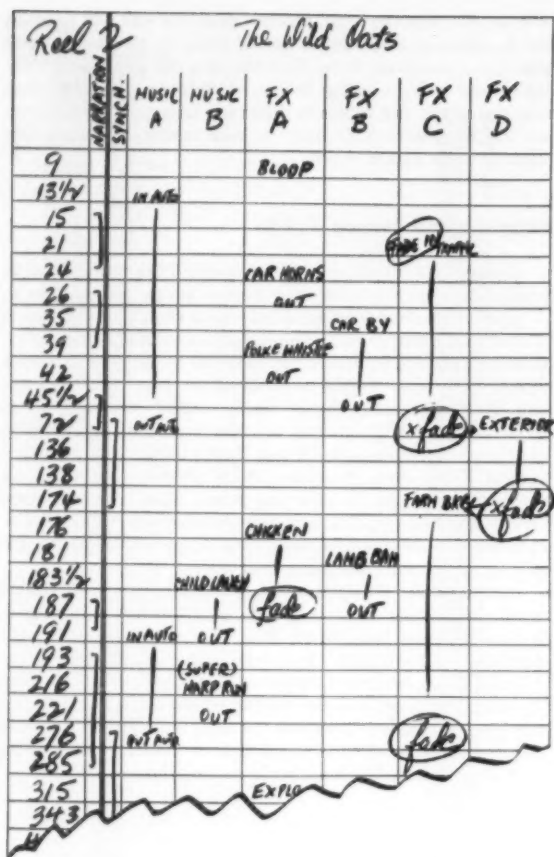 Reel 2 The Wild Oats
NARRATION SYNCH. MUSIC A MUSIC B FX A FX B FX C FX D
9 BLOOP
13 1/2 IN AUTO
15
21 FADE IN
24 CAR HORNS
26 OUT
35 CAR BY
39 POLICE WHISTLE
42 OUT
45 1/2 OUT
72 OUT AUTO x fade EXTERIOR
136
138
174 FARM x fade
176 CHICKEN
181 LAMB BAH
183 1/2 CHILD LAUGH
187 fade OUT
191 IN AUTO OUT
193 (SUPER)
216 HARP RUN
221 OUT
276 OUT AUTO fade
285
315 EXPLO
343